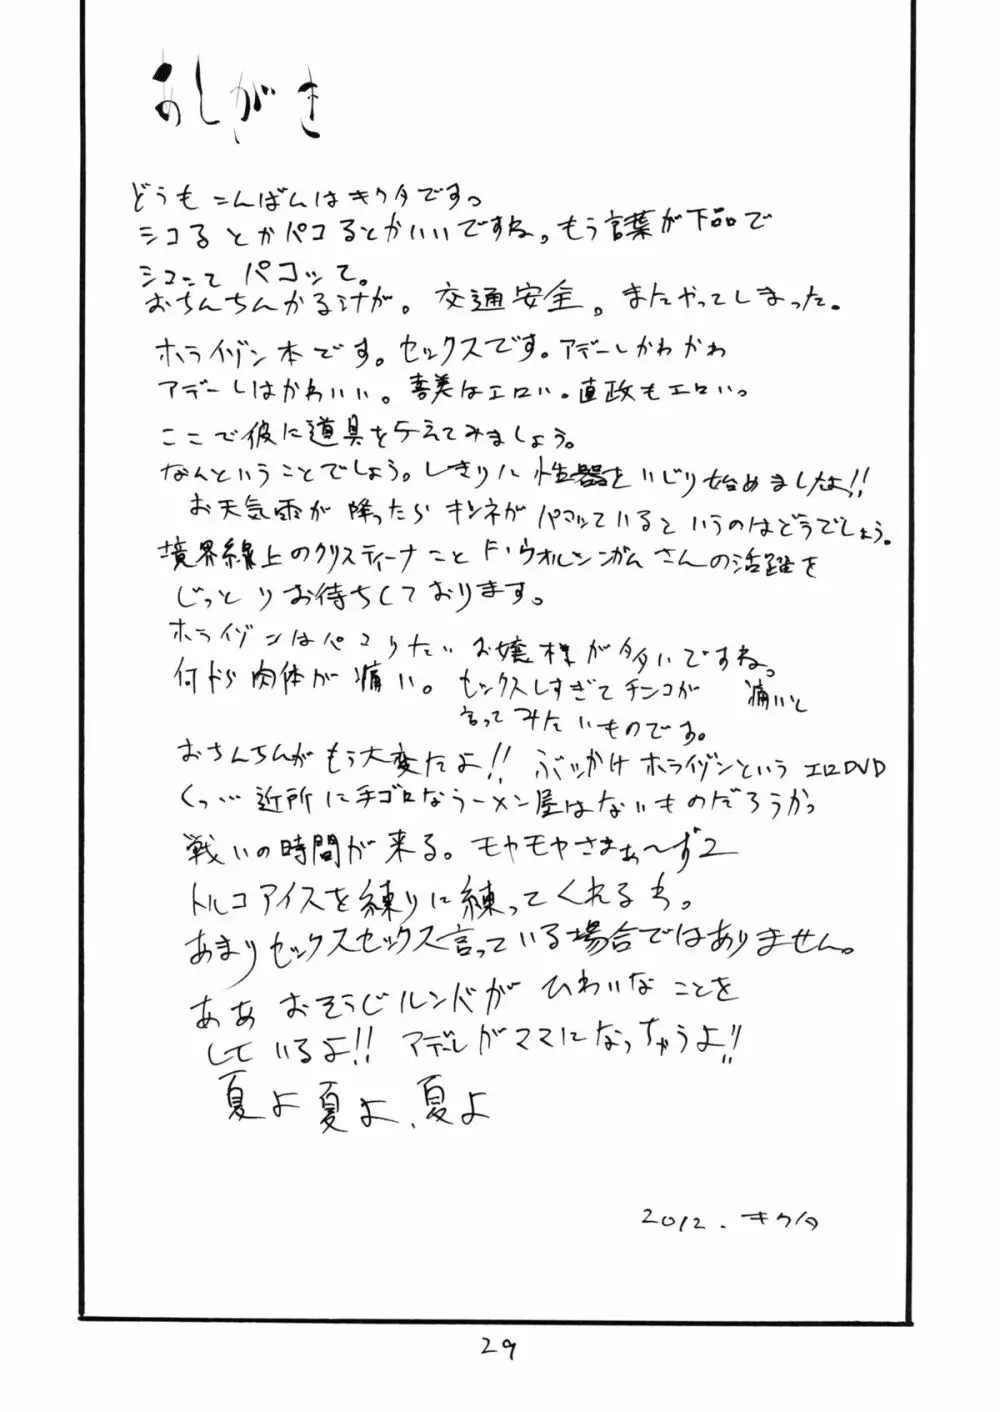 あしがき
どうもこんばんはキクタです。
シコるとかパコるとかいいですね。もう言葉が下品で
シコって パコッて。
おちんちんかる汁が。交通安全。またやってしまった。
ホライゾン本です。セックスです。アデーレかわかわ
アデーレはかわいい。喜美はエロい。直政もエロい。
ここで彼に道具を与えてみましょう。
なんということでしょう。しきりに性器をいじり始めましたよ!!
お天気雨が降ったらキツネがパコッているというのはどうでしょう。
境界線上のクリスティーナこと F・ウオルシンガムさんの活躍を
じっとりお待ちしております。
ホライゾンはパコりたいお嬢様が多いですね。
何から肉体が痛い。セックスしすぎてチンコが痛いと
言ってみたいものです。
おちんちんがもう大変だよ!! ぶッかけホライゾンというエロDVD
くっ… 近所に手ゴロなラーメン屋はないものだろうか。
戦いの時間が来る。モヤモヤさまぁ〜ず2
トルコアイスを練りに練ってくれるわ。
あまりセックスセックス言っている場合ではありません。
ああ おそうじルンバが ひわいなことを
しているよ!! アデーレがママになっちゃうよ!!
夏よ 夏よ、夏よ
2012. キクタ
29